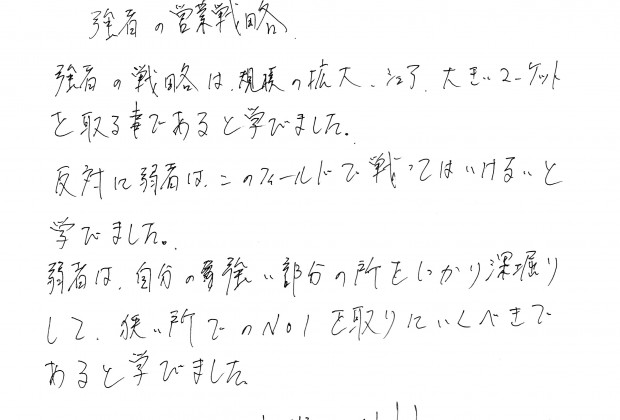 強者の営業戦略
強者の戦略は、規模の拡大、シェア、大きいマーケット
を取る事であると学びました。
反対に弱者は、このフィールドで戦ってはいけないと
学びました。
弱者は、自分の強い部分の所をしっかり深掘り
して、狭い所でのNo1を取りにいくべきで
あると学びました。